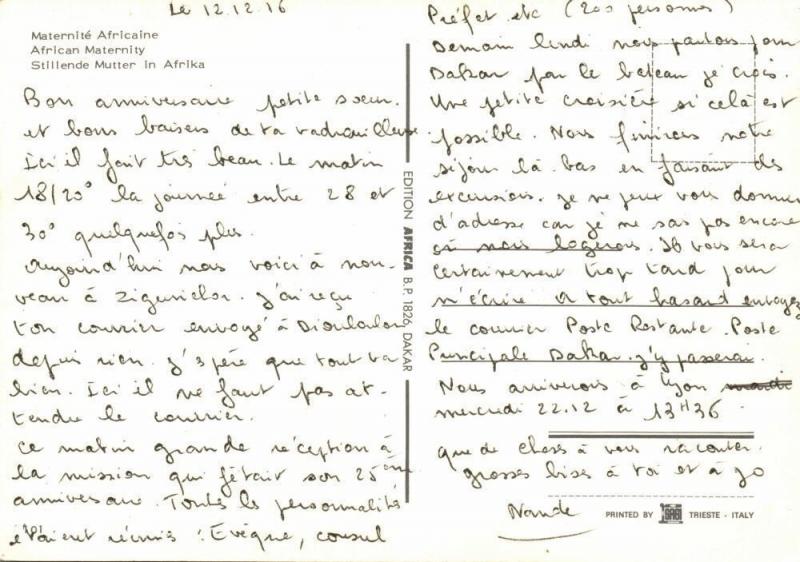 Le 12.12.76
Maternité Africaine
African Maternity
Stillende Mutter in Afrika
Bon anniversaire petite soeur.
et bons baisers de ta vadrouilleuse
Ici il fait très beau. Le matin
18/20° la journée entre 28 et
30° quelquefois plus.
Aujourd'hui nous voici à nou-
veau à Ziguinchor. J'ai reçu
ton courrier envoyé à Diouloulou
depuis rien. J'espère que tout va
bien. Ici il ne faut pas at-
tendre le courrier.
Ce matin grande réception à
la mission qui fêtait son 25ème
anniversaire. Toutes les personnalités
étaient réunies : Evêque, consul
EDITION AFRICA B.P. 1826, DAKAR
Préfet etc (200 personnes)
Demain lundi nous partons pour
Dakar par le bateau je crois.
Une petite croisière si celà est
possible. Nous finirons notre
séjour là bas en faisant des
excursions. Je ne peux vous donner
d'adresse car je ne sais pas encore
où nous logerons. Il vous sera
certainement trop tard pour
m'écrire. A tout hasard envoyez
le courrier Poste Restante. Poste
Principale Dakar. J'y passerai.
Nous arriverons à Lyon
mercredi 22.12 à 13H36
que de choses à vous raconter.
grosses bises à toi et à Jo
PRINTED BY SAGI TRIESTE - ITALY